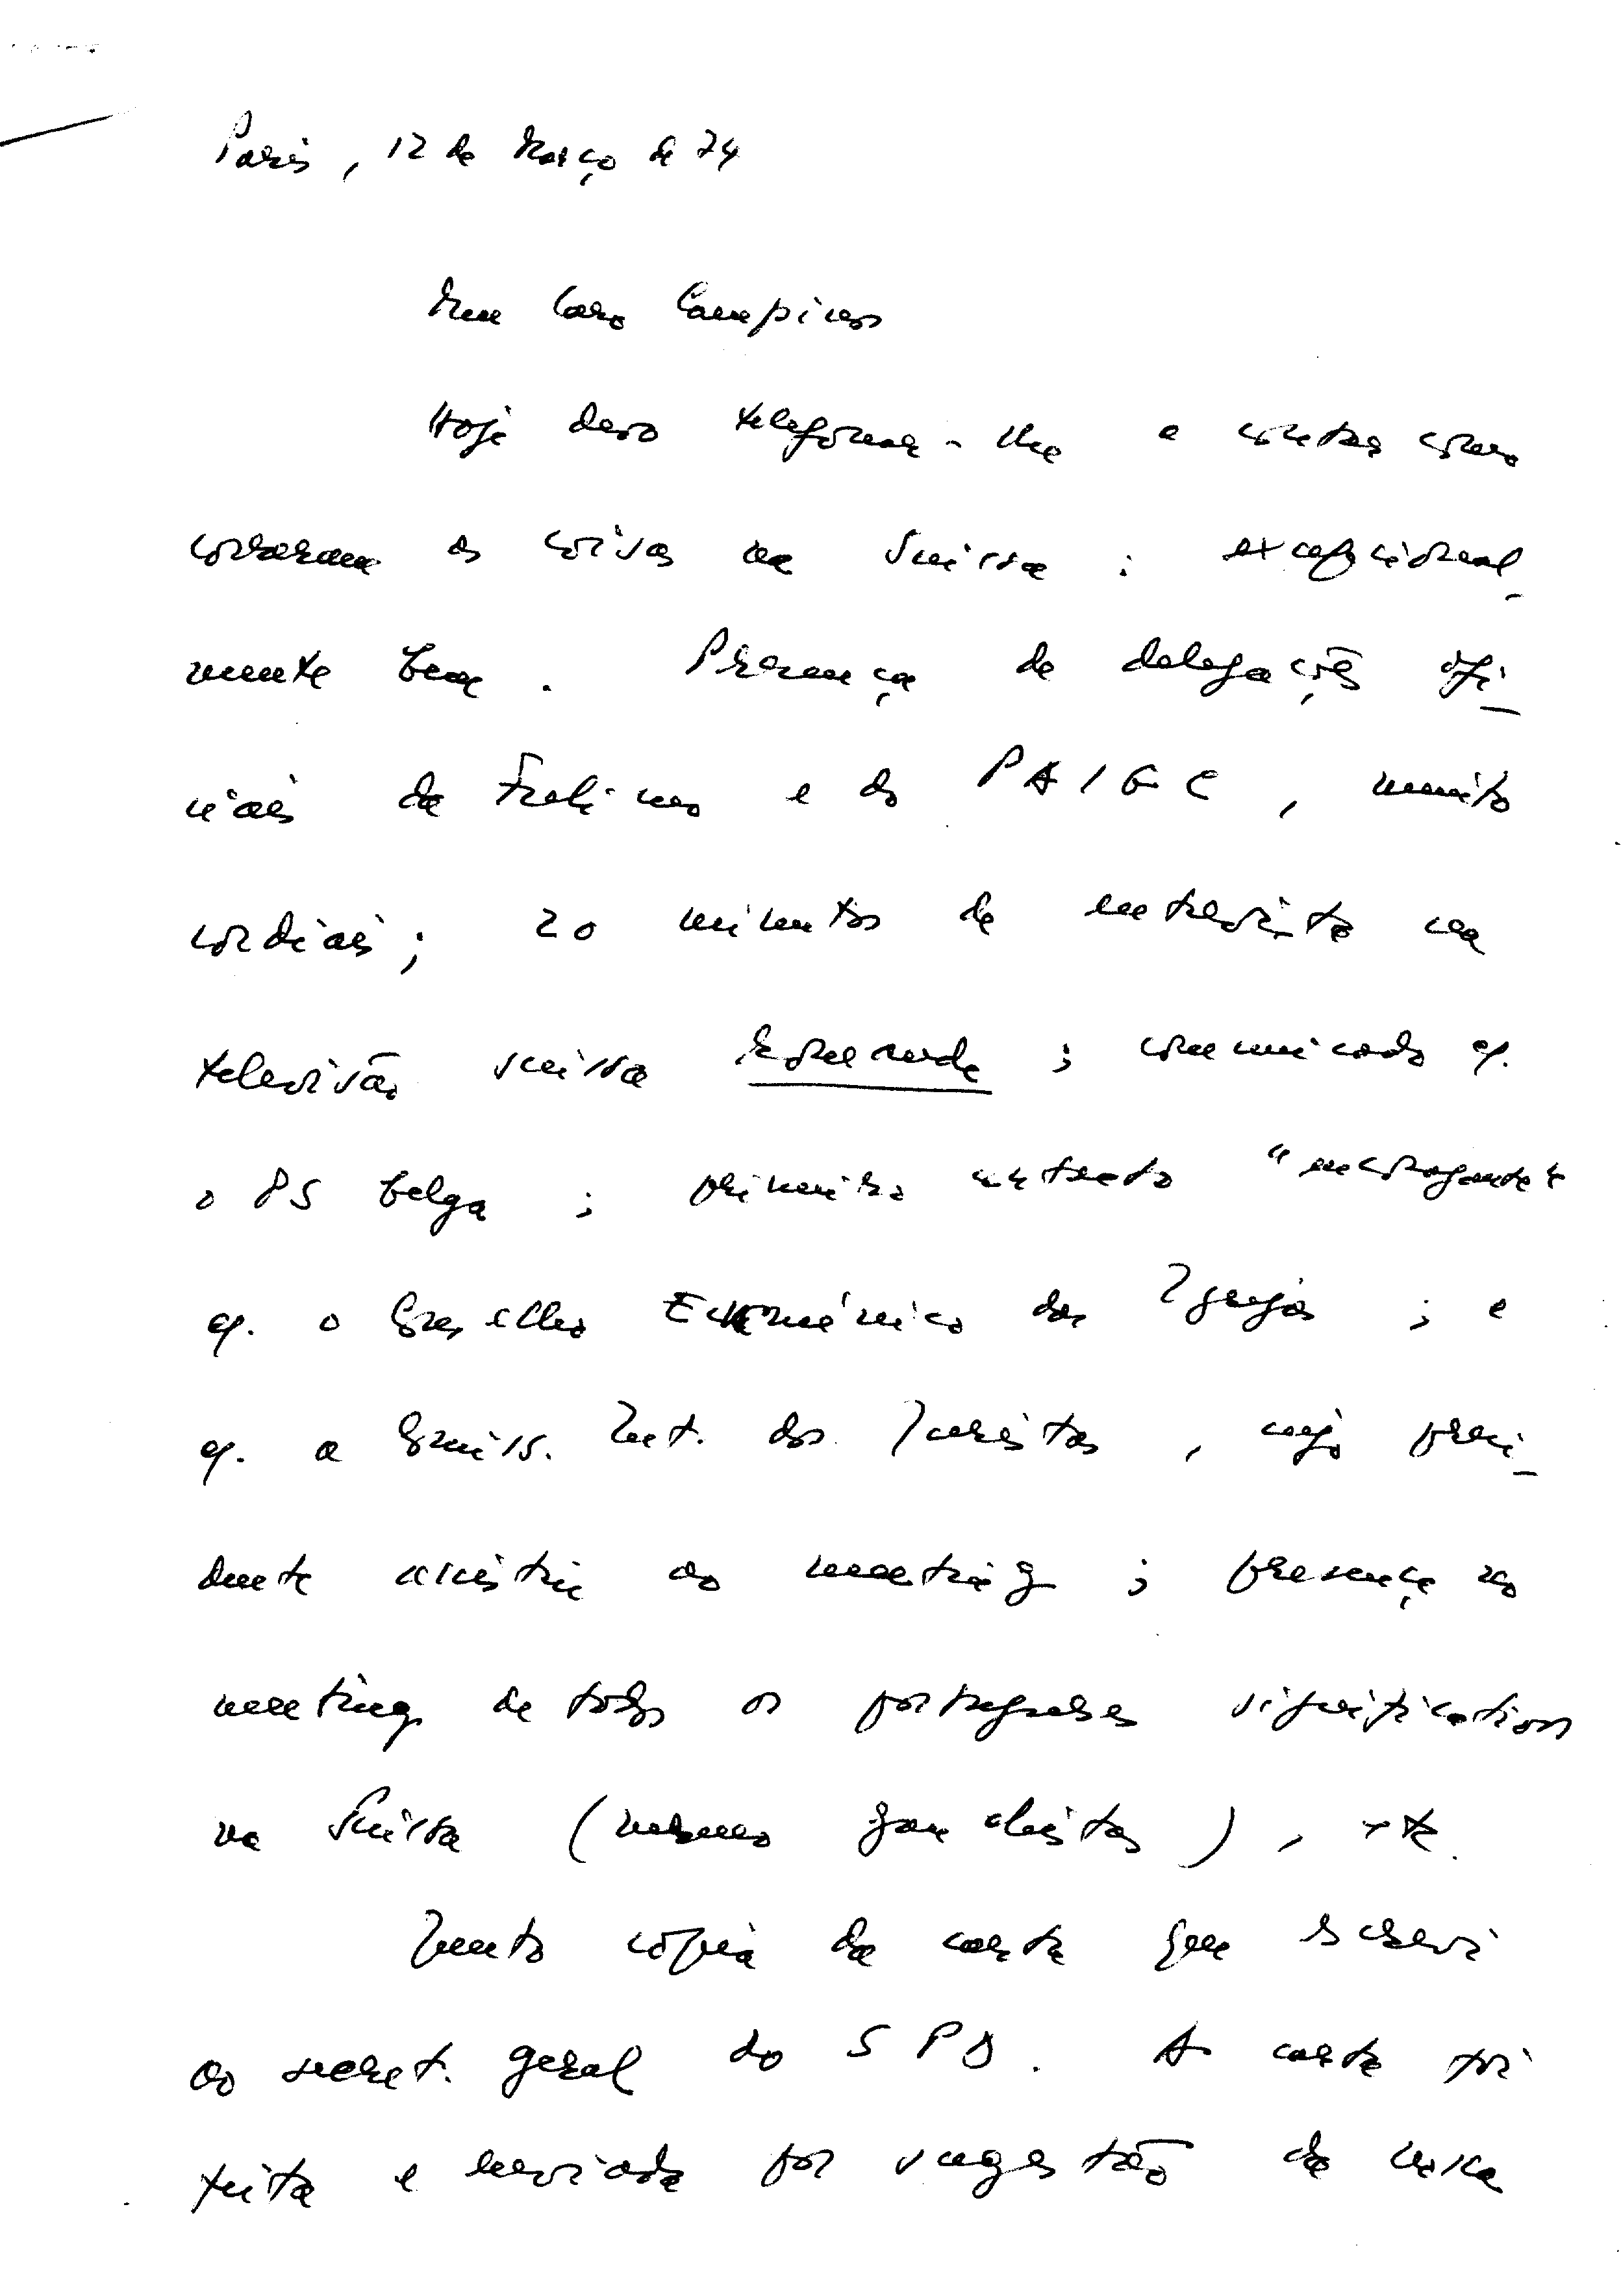 Paris, 12 de Março de 74
Meu Caro Campinos
Hoje devo telefonar-lhe e contar como
correram as coisas na Suissa: excepcional-
mente bem. Presença de delegações ofi-
ciais da Frelimo e do PAIGC, muito
cordiais; 20 minutos de entrevista na
televisão suissa Romande; comunicado c/.
o PS belga; primeiro contacto "encorajante"
c/. o Conselho Ecuménico das Igrejas; e
c/. a Comis. Int. dos Juristas, cujo presi-
dente assistiu ao meeting; presença no
meeting de todos os portugueses significativos
na Suissa (mesmo gauchistas), etc.
Junto cópia da carta que escrevi
ao secret. geral do SPD. A carta foi
feita e enviada por sugestão da